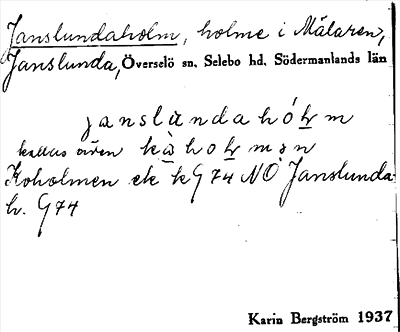 Janslundaholm, holme i Mälaren,
Janslunda, Överselö sn, Selebo hd, Södermanlands län
janslùndahól̥m
kallas även kàhol̥mən
Koholmen ek kG 74 NO Janslunda
h. G74
Karin Bergström 1937